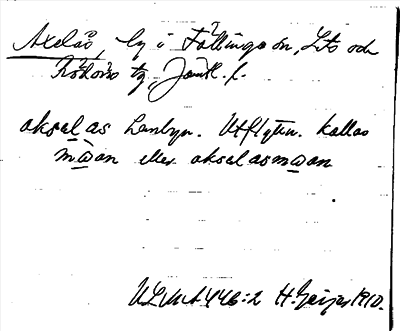 Axelås, by i Föllinge sn, Lits och
Rödöns tg, Jämtl. l.
aksal as hembyn. Utflytn. kallas
mωan eller aksalasmωan
ULMA 446:2 H. Geijer 1910.